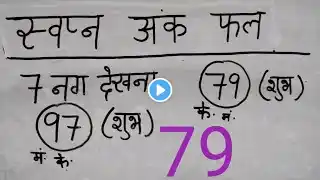 स्वप्न अंक फल
7 नग देखना 79 (शुभ)
के. मं.
97 (शुभ)
मं. के.
79